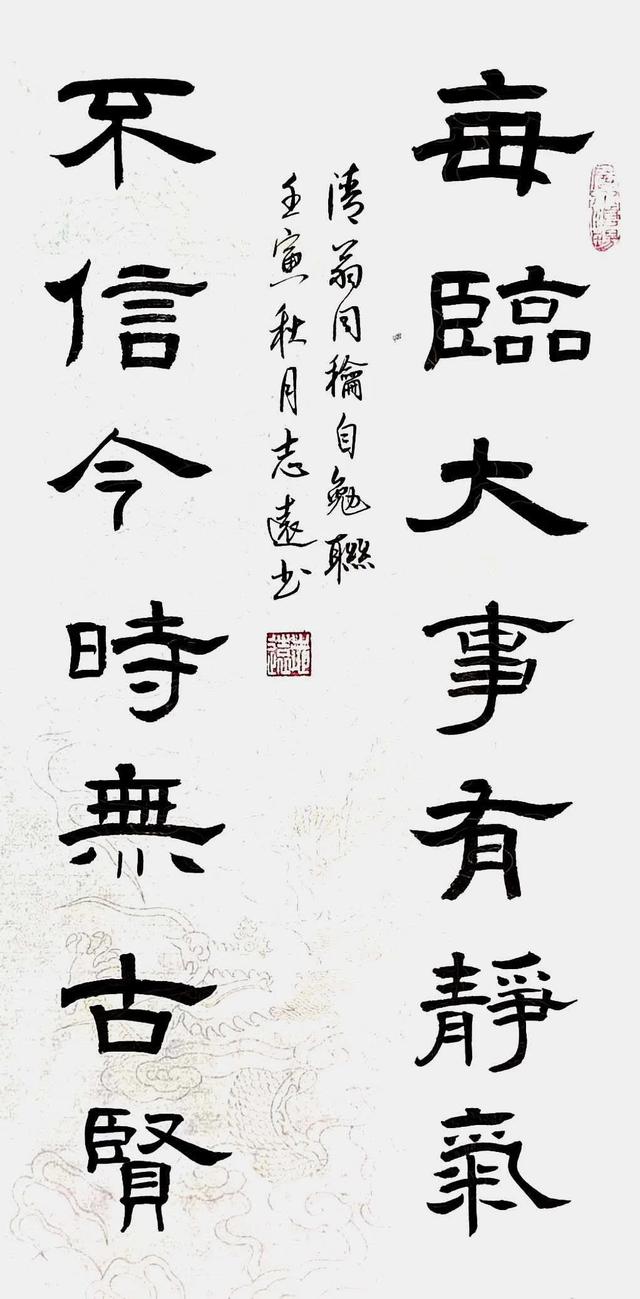 每臨大事有靜氣
不信今時無古賢
清翁同稐自勉聯
壬寅秋月志遠书
志遠